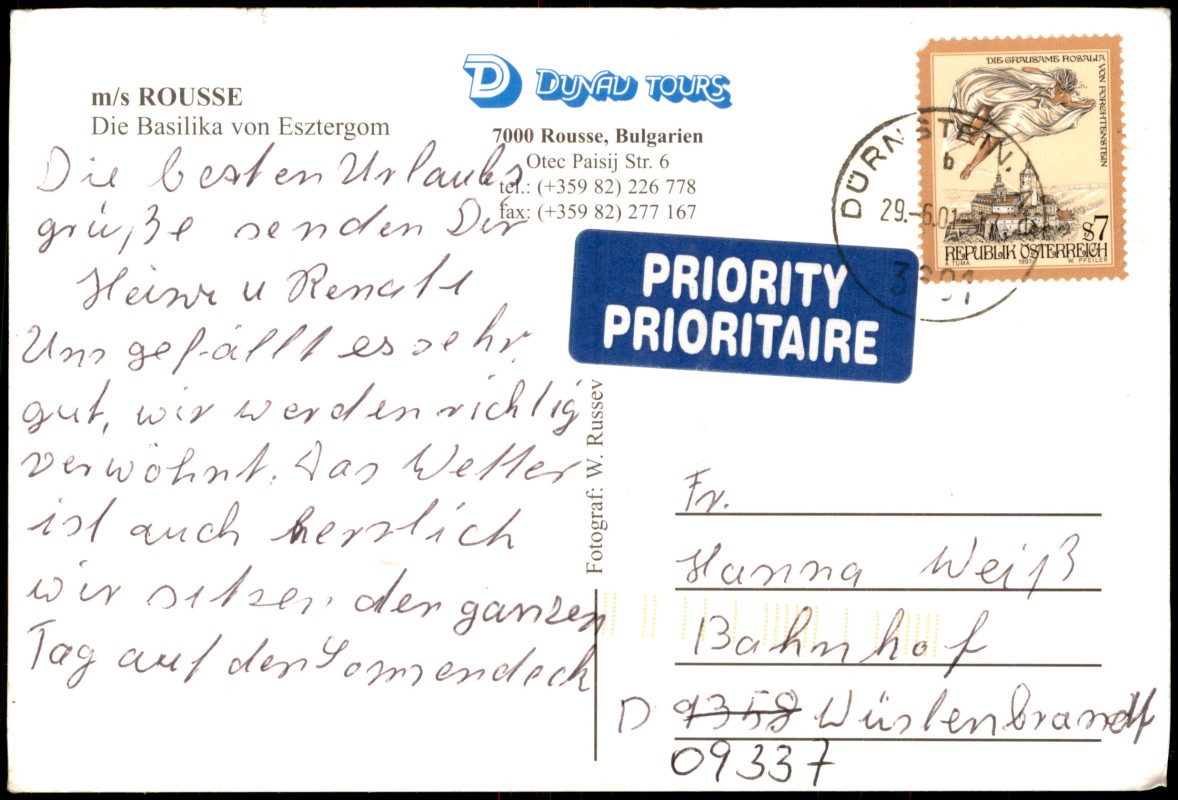 m/s ROUSSE
Die Basilika von Esztergom
DUNAV TOURS
7000 Rousse, Bulgarien
Otec Paisij Str. 6
tel.: (+359 82) 226 778
fax: (+359 82) 277 167
DIE GRAUSAME ROSALIA VON FORCHTENSTEIN
S7
REPUBLIK ÖSTERREICH
A. TUMA 1997 W. PFEILER
DÜRNSTEIN
b
29.-6.01
3601
PRIORITY
PRIORITAIRE
Die besten Urlaubs
grüße senden Dir
Heinz u Renate
Uns gefällt es sehr
gut, wir werden richtig
verwöhnt. Das Wetter
ist auch herrlich
wir sitzen den ganzen
Tag auf den Sonnendeck
Fotograf: W. Russev
Fr.
Hanna Weiß
Bahnhof
D 9358 Wüstenbrandt
09337